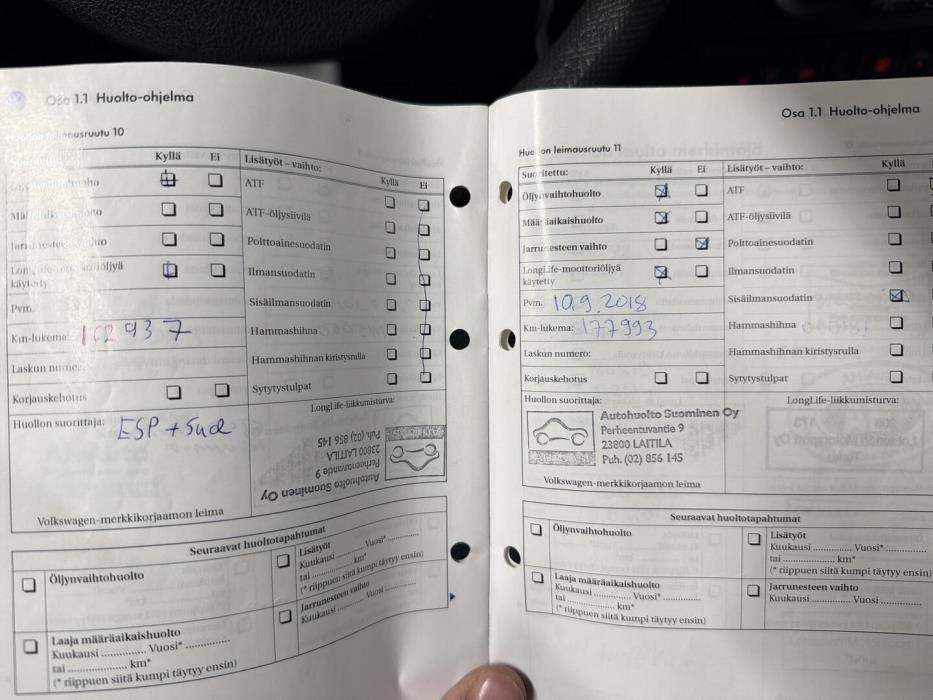 Osa 1.1 Huolto-ohjelma
leimausruutu 10
Kyllä Ei
Lisätyöt – vaihto:
Kyllä Ei
ATF
ATF-öljysiivilä
Jarrunesteen vaihto
Polttoainesuodatin
LongLife-moottoriöljyä
käytetty
Ilmansuodatin
Pvm.
Sisäilmansuodatin
Km-lukema: 162937
Hammashihna
Laskun numero:
Hammashihnan kiristysrulla
Korjauskehotus
Sytytystulpat
Huollon suorittaja:
LongLife-liikkumisturva:
ESP + Sud
Autohuolto Suominen Oy
Perheentuvantie 9
23800 LAITILA
Puh. (02) 856 145
Volkswagen-merkkikorjaamon leima
Seuraavat huoltotapahtumat
Öljynvaihtohuolto
Lisätyöt
Kuukausi ............ Vuosi* ............
tai ............ km*
(* riippuen siitä kumpi täytyy ensin)
Laaja määräaikaishuolto
Kuukausi ............ Vuosi* ............
tai ............ km*
(* riippuen siitä kumpi täytyy ensin)
Jarrunesteen vaihto
Kuukausi ............ Vuosi ............
Osa 1.1 Huolto-ohjelma
Huollon leimausruutu 11
Suoritettu:
Kyllä Ei
Lisätyöt – vaihto:
Kyllä
Öljynvaihtohuolto
ATF
Määräaikaishuolto
ATF-öljysiivilä
Jarrunesteen vaihto
Polttoainesuodatin
LongLife-moottoriöljyä
käytetty
Ilmansuodatin
Pvm. 10.9.2018
Sisäilmansuodatin
Km-lukema: 177993
Hammashihna
Laskun numero:
Hammashihnan kiristysrulla
Korjauskehotus
Sytytystulpat
Huollon suorittaja:
LongLife-liikkumisturva:
Autohuolto Suominen Oy
Perheentuvantie 9
23800 LAITILA
Puh. (02) 856 145
Volkswagen-merkkikorjaamon leima
Seuraavat huoltotapahtumat
Öljynvaihtohuolto
Lisätyöt
Kuukausi ............ Vuosi* ............
tai ............ km*
(* riippuen siitä kumpi täytyy ensin)
Laaja määräaikaishuolto
Kuukausi ............ Vuosi* ............
tai ............ km*
(* riippuen siitä kumpi täytyy ensin)
Jarrunesteen vaihto
Kuukausi ............ Vuosi ............